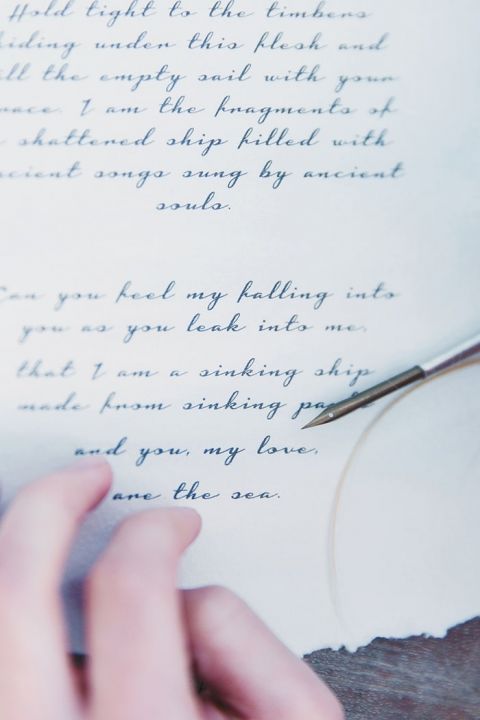 Hold tight to the timbers
hiding under this flesh and
fill the empty sail with your
I am the fragments of
shattered ship filled with
ancient songs sung by ancient
souls.
Can you feel my falling into
you as you leak into me,
that I am a sinking ship
made from sinking
and you, my love,
are the sea.